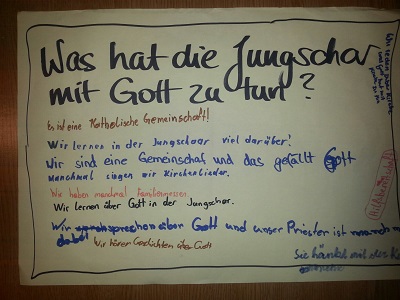 Was hat die Jungschar
mit Gott zu tun?
Es ist eine Katholische Gemeinschaft!
Wir lernen in der Jungschaar viel darüber!
Wir sind eine Gemeinschaf und das gefällt Gott
Manchmal singen wir Kirchenlieder.
Wir haben manchmal Familienmessen
Wir lernen über Gott in der Jungschar.
Wir sprechen über Gott und unser Priester ist
dabei
Wir hören Geschichten über Gott
Sie hänkt mit der
Wir reden über Kirche
und Gott